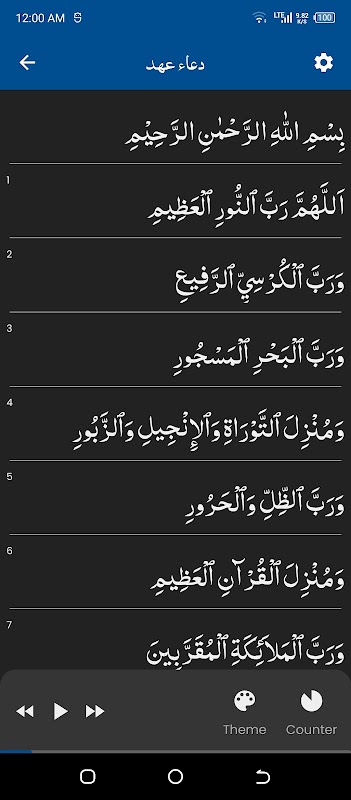 12:00 AM
LTE 9.82 K/S 100
دعاء عهد
بِسْمِ اللّٰهِ الرَّحْمٰنِ الرَّحِيْمِ
1
اَللَّهُمَّ رَبَّ ٱلنُّورِ ٱلْعَظِيمِ
2
وَرَبَّ ٱلْكُرْسِيِّ ٱلرَّفِيعِ
3
وَرَبَّ ٱلْبَحْرِ ٱلْمَسْجُورِ
4
وَمُنْزِلَ ٱلتَّوْرَاةِ وَٱلإِنْجِيلِ وَٱلزَّبُورِ
5
وَرَبَّ ٱلظِّلِّ وَٱلْحَرُورِ
6
وَمُنْزِلَ ٱلْقُرْآنِ ٱلْعَظِيمِ
7
وَرَبَّ ٱلْمَلاَئِكَةِ ٱلْمُقَرَّبِينَ
Theme Counter